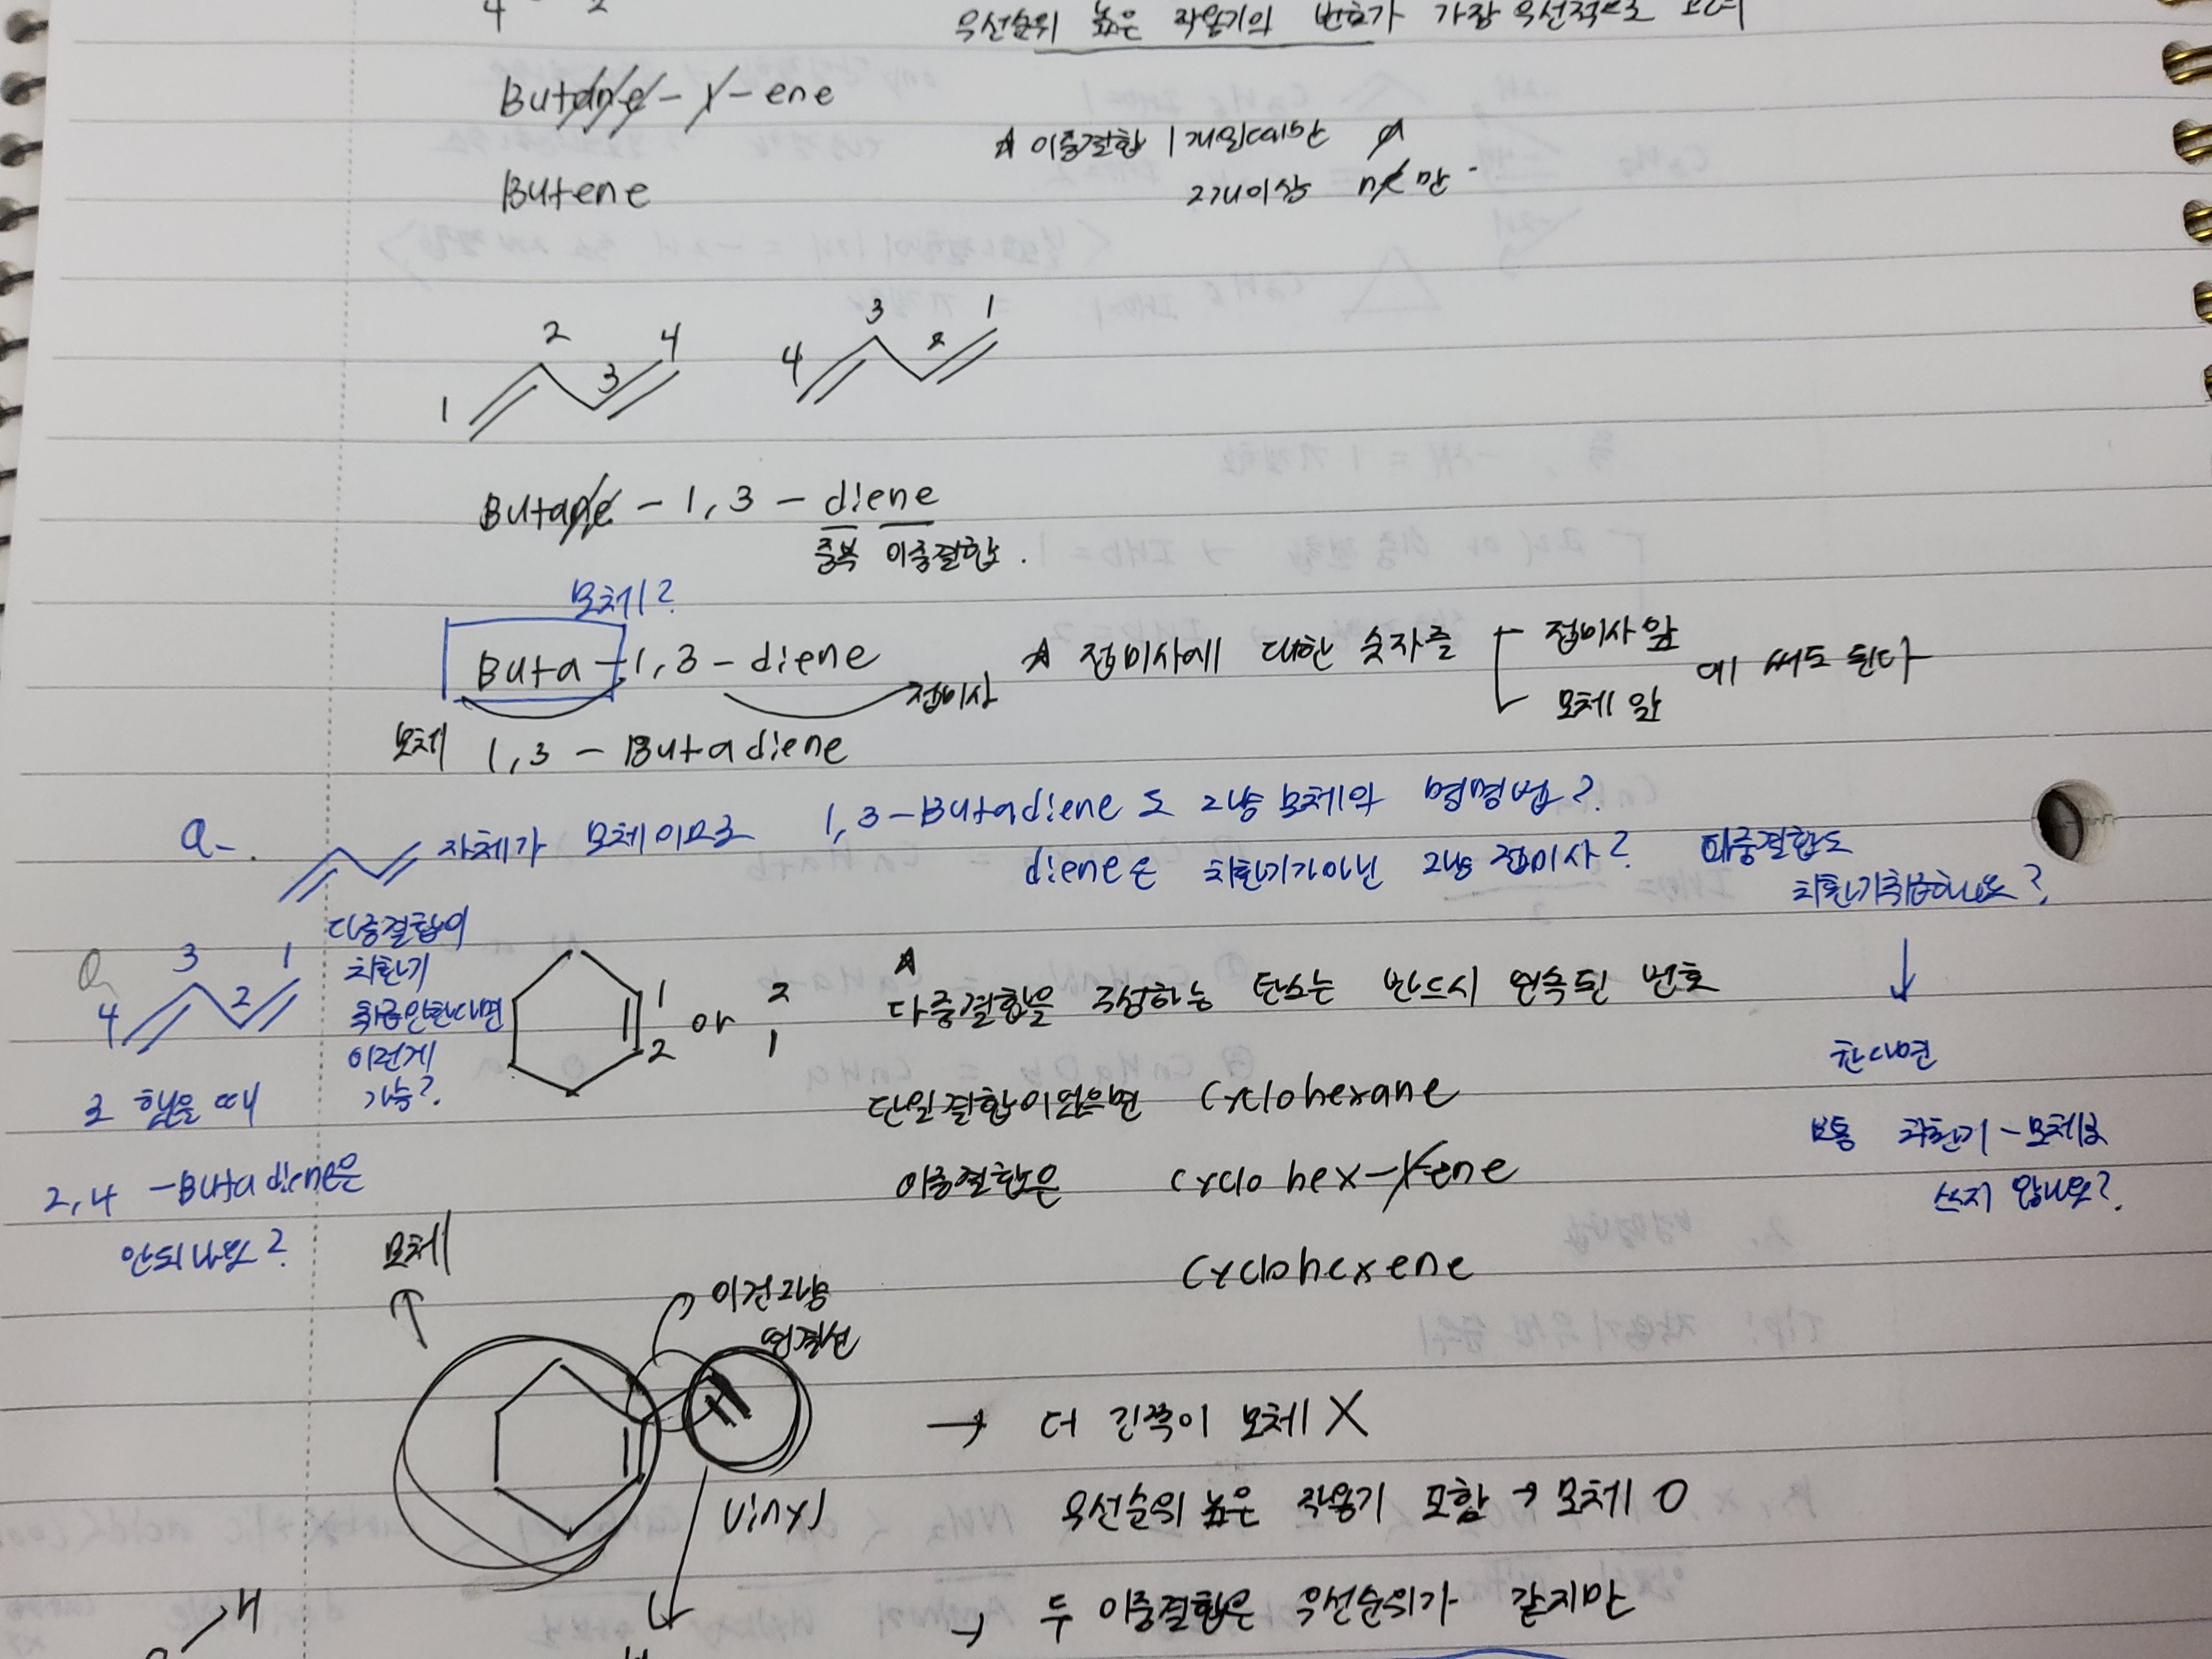 4 2
우선순위 높은 작용기의 번호가 가장 우선적으로 고려
Butane-1-ene
☆ 이중결합 1개일때만
Butene
2개이상 ne만
2 4
1 3
3 1
4 2
Butane - 1,3 - diene
중복 이중결합.
모체?
Buta-1,3-diene
접미사
☆ 접미사에 대한 숫자를
접미사 앞
모체 앞
에 써도 된다
모체 1,3 - Butadiene
Q.
자체가 모체이므로 1,3-Butadiene도 그냥 모체의 명명법?
diene은 치환기가아닌 그냥 접미사?
다중결합도
치환기취급하나요?
다중결합이
치환기
취급안한다면
이런게
가능?
Q
3 1
4 2
로 했을 때
2,4 -Butadiene은
안되나요?
1
2
or
2
1
☆
다중결합을 구성하는 탄소는 반드시 연속된 번호
단일결합이었으면 Cyclohexane
이중결합은 cyclohex-1-ene
Cyclohexene
한다면
보통 치환기-모체로
쓰지 않나요?
모체
이건그냥
연결선
vinyl
→ 더 긴쪽이 모체 X
우선순위 높은 작용기 포함 → 모체 O
→ 두 이중결합은 우선순위가 같지만
H